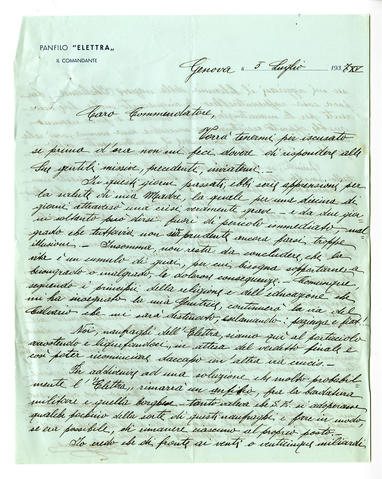 PANFILO "ELETTRA"
IL COMANDANTE
Genova, 5 Luglio 1937 XV
Caro Commendatore,
Vorrà tenermi per iscusato
se prima d'ora non mi feci dovere di rispondere alle
Sue gentili missive, precedente, inviatemi.-
In questi giorni passati, ebbi serie apprensioni per
la salute di mia Madre, la quale, per una decina di
giorni attraversò una crisi veramente grave - e da due giorni
in soltanto può dirsi fuori di pericolo immediato, mal-
grado che tuttavia non sia prudente ancora farsi troppe
illusioni. - Insomma, non resta da concludere, che la
vita è un cumulo di guai, per cui, bisogna sopportarne a
buongrado o malgrado, le dolorose conseguenze. - Comunque
seguendo i principi della religione e dell'educazione che
mi ha insegnato la mia Genitrice, continuerò la via del
Calvario che mi sarà destinato esclamando: pazienza e fiat!
Noi, naufraghi dell'Elettra, siamo qui al porticciolo
arrostendo e in attesa del verdetto finale e
così poter ricominciare daccapo un altra via crucis.-
Per addivenire ad una soluzione, che molto probabil-
mente l'Elettra, rimarrà un per la bardatura
militare e quella borghese - tanto valeva che S.E. si adoperasse
qualche pochino delle sorte di questi naufraghi e fare in modo
se era possibile, di rimanere ciascuno al proprio posto.
Io credo che di fronte ai venti o venticinque miliardi